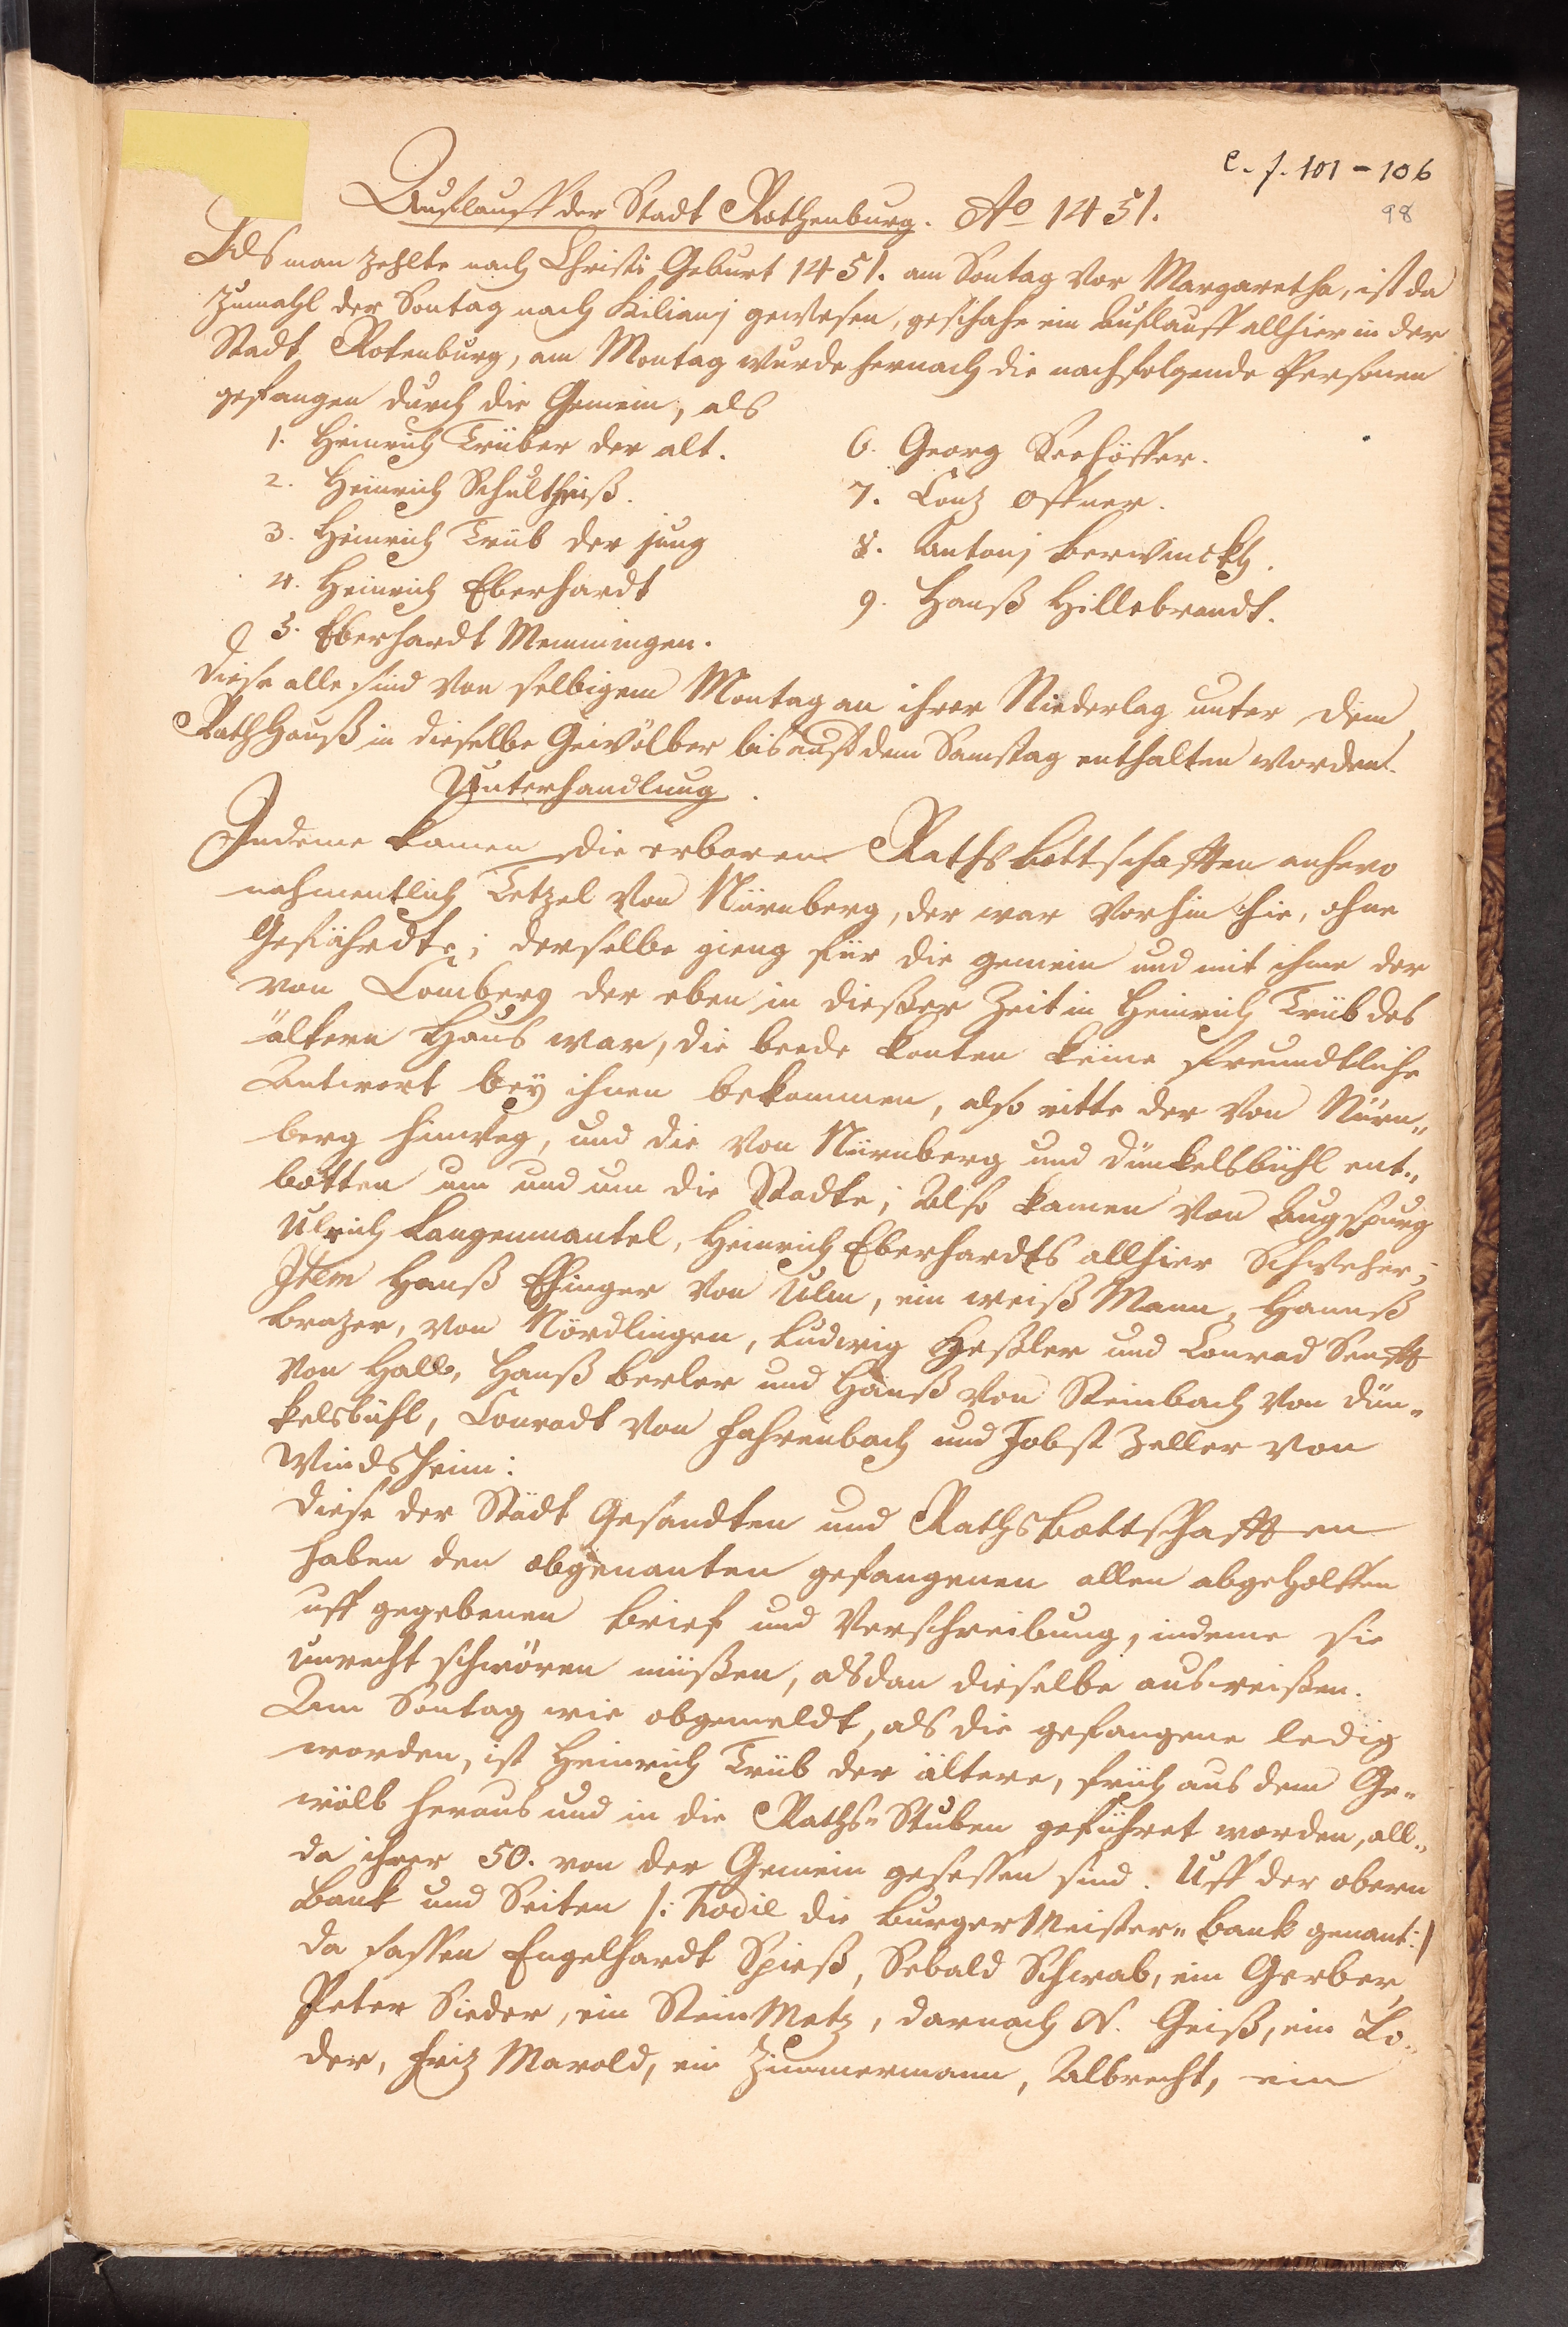 c. f. 101 - 106
98
Aufflauff der Stadt Rothenburg. Ao 1451.
Als man zehlte nach Christi Geburt 1451. am Sontag vor Margaretha, ist da
zumahl der Sontag nach Kiliani gewesen, geschahe ein Aufflauff allhier in der
Stadt Rotenburg, am Montag wurde hernach die nachfolgende Personen
gefangen durch die Gemein, als
1. Heinrich Trüber der alt.
2. Heinrich Schultheiß.
3. Heinrich Trüb der jung
4. Heinrich Eberhardt
5. Eberhardt Memmingen.
6. Georg Seehöffer.
7. Contz Offner.
8. Antonj Berwinckh.
9. Hanß Hillebrandt.
Diese alle sind von selbigem Montag an ihrer Niederlag unter dem
Rathhauß in dieselbe Gewölber bis auff dem Samstag enthalten worden.
Unterhandlung.
Indeme kamen die erbaren Rathsbottschafften anhero
nahmentlich Tetzel von Nürnberg, der war vorhin hie, ohne
Gefährdte; derselbe gieng für die gemein und mit ihme der
von Comberg der eben in dießer Zeit in Heinrich Trüb des
ältern Haus war, die beede konten keine freundtliche
Antwort bey ihnen bekommen, also ritte der von Nürn„
berg hinweg, und die von Nürnberg und Dünkelsbühl ent„
botten um und um die Stadte; Also kamen von Augspurg
Ulrich Langenmantel, Heinrich Eberhardts allhier Schweher;
Item Hanß Ehinger von Ulm, ein weiß Mann, Hannß
Brazer, von Nördlingen, Ludwig Heßler und Conrad Senfft
von Hall, Hanß Berler und Hanß von Steinbach von Dün„
kelsbühl, Conradt von Fahrenbach und Jobst Zeller von
Windsheim:
Diese der Städt Gesandten und Rathsbottschafften
haben den obgenanten gefangenen allen abgeholffen
uff gegebenen Brief und Verschreibung, indeme sie
unrecht schwören müßen, alsdan dieselbe ausweißen.
Am Sontag wie obgemeldt, als die gefangene ledig
worden, ist Heinrich Trüb der ältere, früh aus dem Ge„
wölb heraus und in die Raths„Stuben geführet worden, all„
da ihrer 50. von der Gemein gesessen sind. Uff der obern
Bank und Seiten /: hodie die BurgerMeister„Bank genant:/
da sassen Engelhardt Spieß, Sebald Schwab, ein Gerber,
Peter Sieder, ein SteinMetz, darnach N. Geiß, ein Lo„
der, Friz Marold, ein Zimmermann, Albrecht, ein